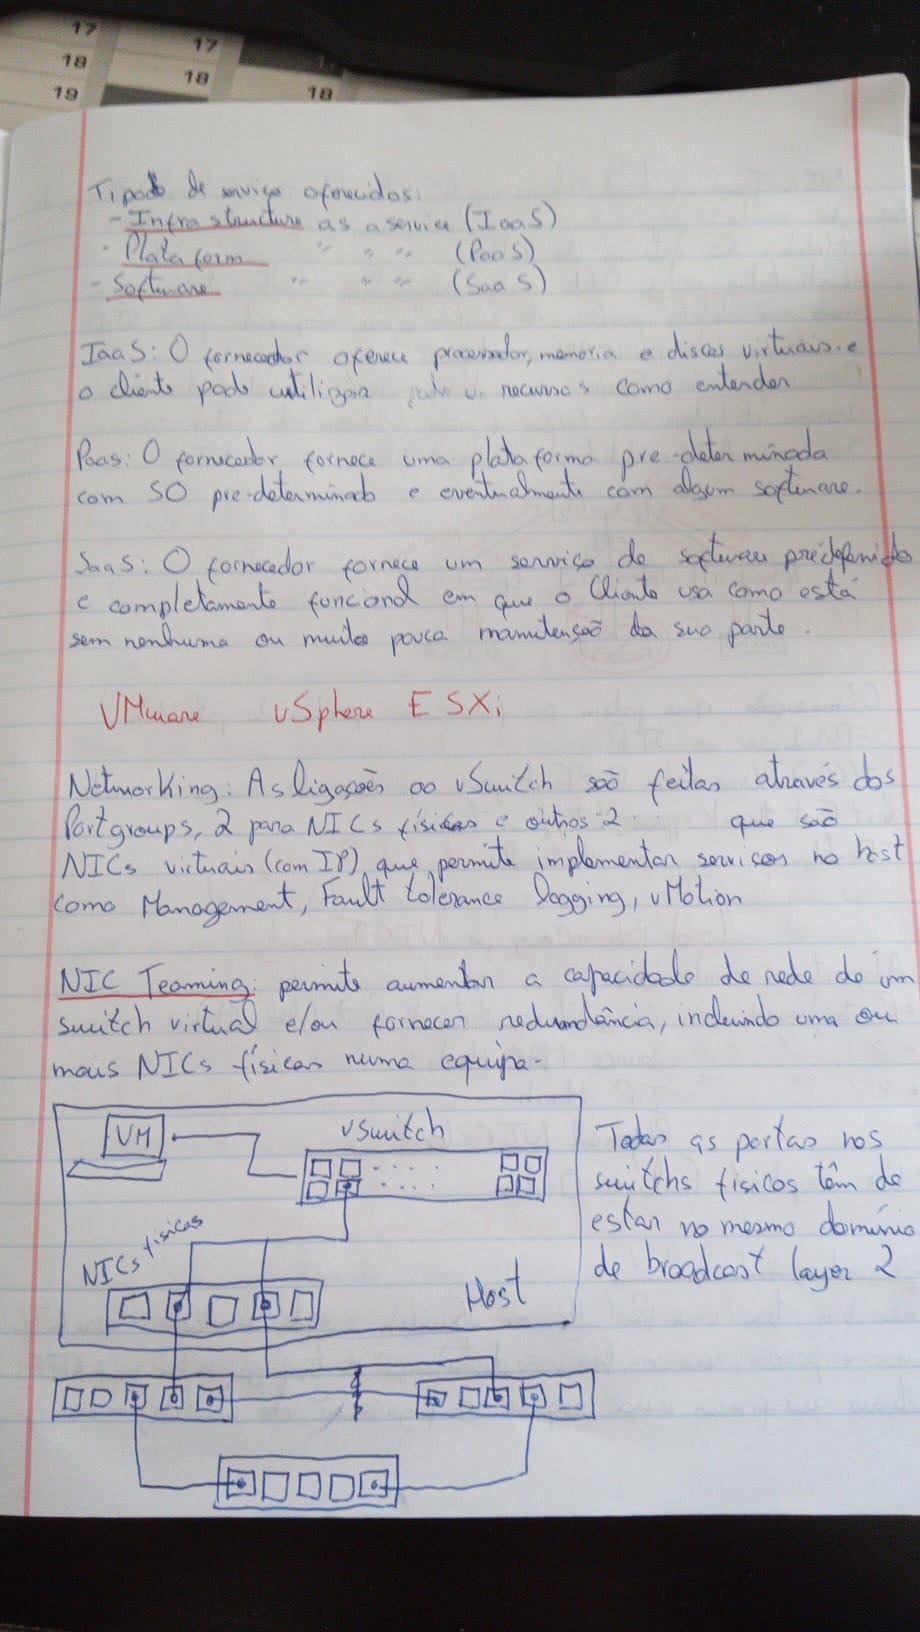 17
17
18
18
19
18
Tipos de serviço oferecidos:
- Infrastructure as a service (IaaS)
- Plataform " " " (PaaS)
- Software " " " (SaaS)
IaaS: O fornecedor oferece processador, memoria e discos virtuais e
o cliente pode utilizar recursos como entender
Paas: O fornecedor fornece uma plataforma pre-determinada
com SO pre-determinado e eventualmente com algum software.
SaaS: O fornecedor fornece um serviço de software predefenido
e completamente funcional em que o Cliente usa como está
sem nenhuma ou muito pouca manutensão da sua parte.
VMware vSphere ESXi
Networking: As ligações ao vSwitch são feitas através dos
Portgroups, 2 para NICs físicas e outros 2 que são
NICs virtuais (com IP) que permite implementar serviços no host
como Management, Fault tolerance logging, vMotion
NIC Teaming: permite aumentar a capacidade de rede de um
switch virtual e/ou fornecer redundância, incluindo uma ou
mais NICs físicas numa equipa.
VM
vSwitch
NICs físicas
Host
Todas as portas nos
switchs fisicos têm de
estar no mesmo domínio
de broadcast layer 2